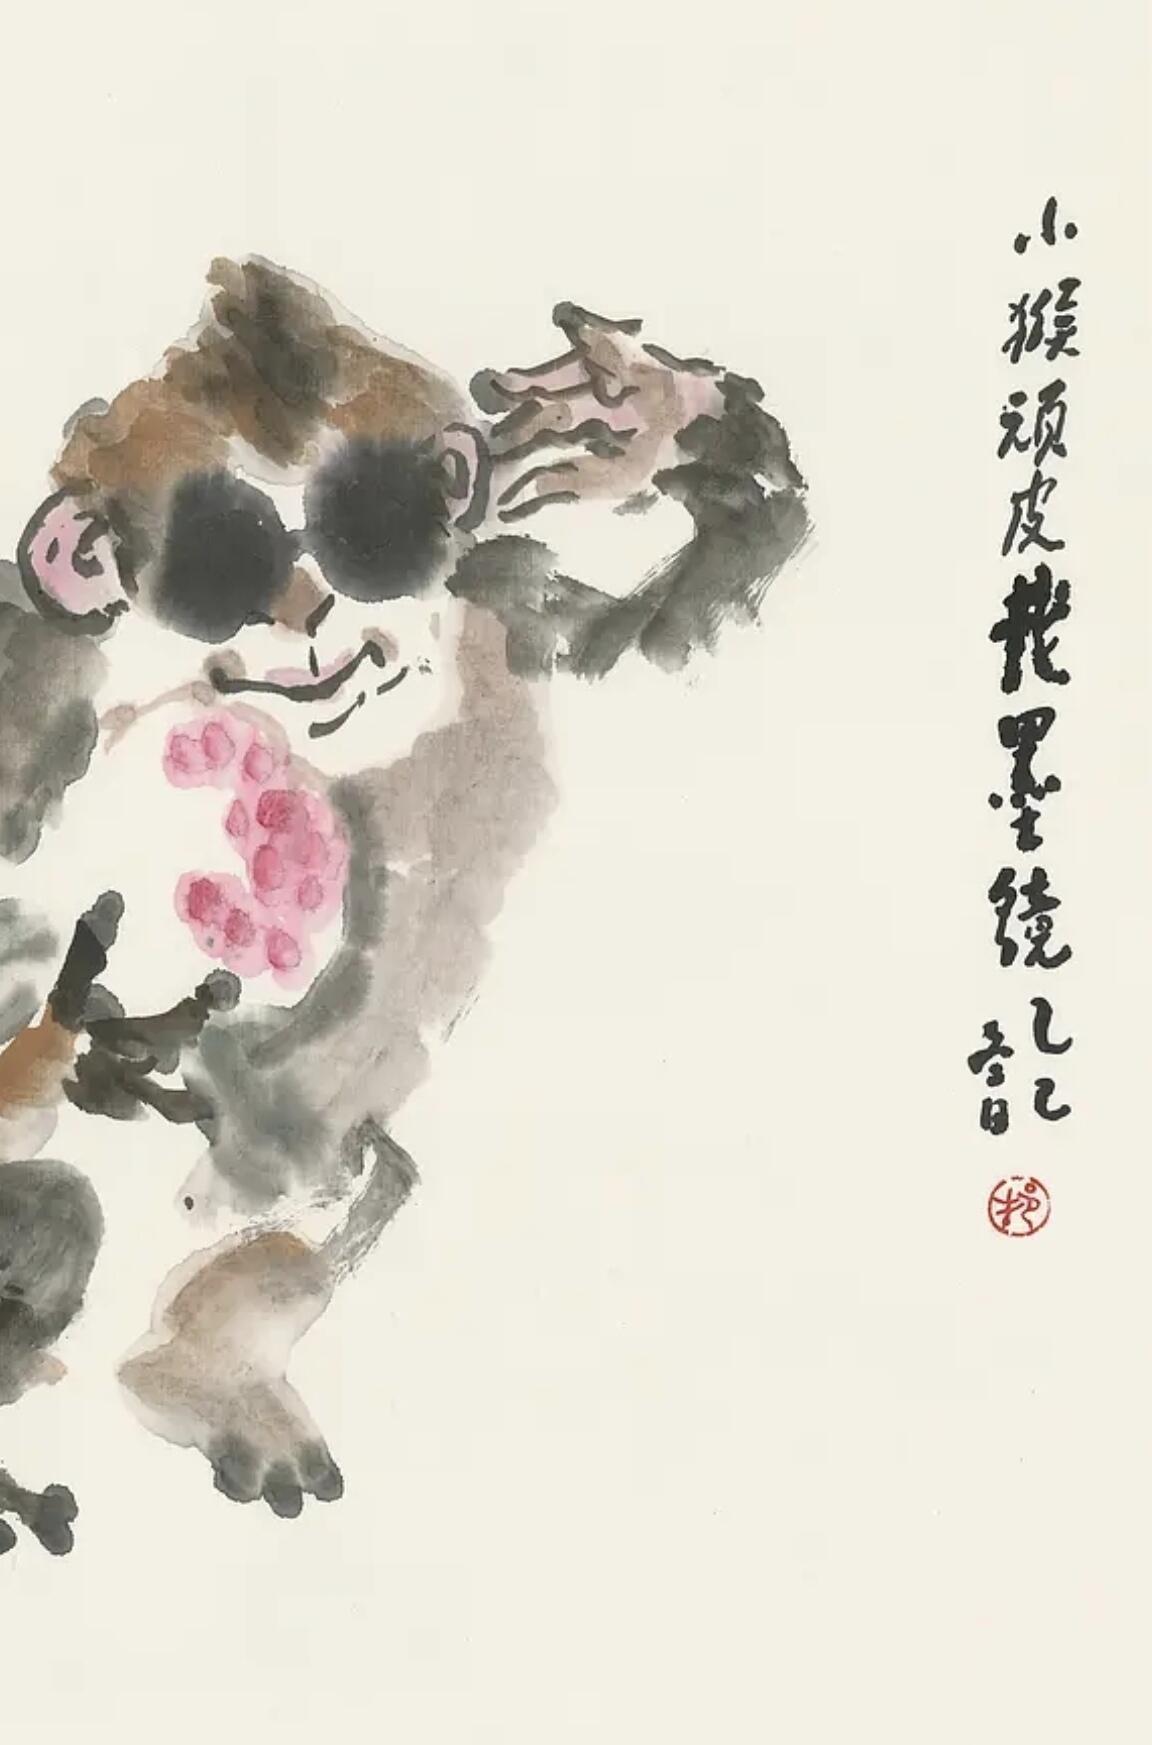 小猴顽皮墨镜 乙巳
冬日